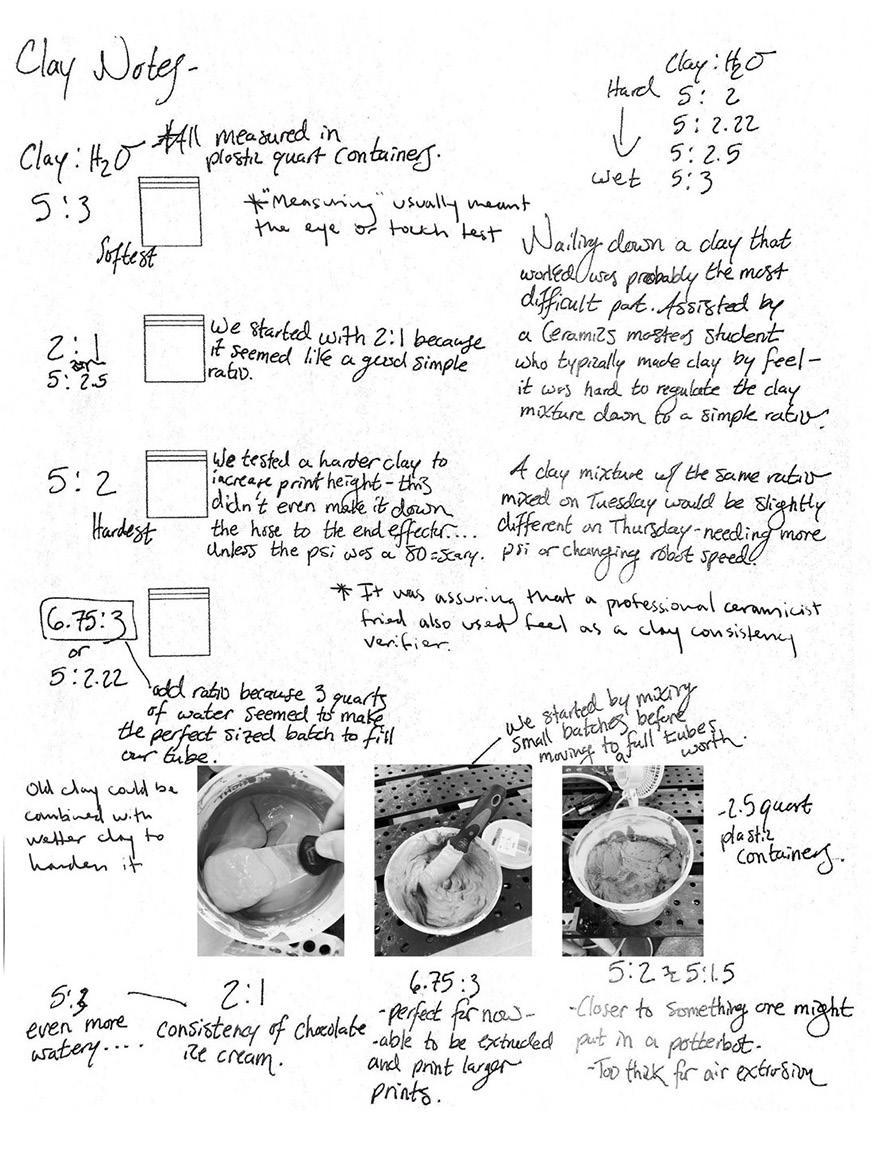 Clay Notes-
Clay : H2O
Hard 5 : 2
5 : 2.22
5 : 2.5
Wet 5 : 3
Clay : H2O
*All measured in
plastic quart containers.
5 : 3
Softest
*"Measuring" usually meant
the eye or touch test
Nailing down a clay that
worked was probably the most
difficult part. Assisted by
a Ceramics masters student
who typically made clay by feel-
it was hard to regulate the clay
mixture down to a simple ratio.
2 : 1
or
5 : 2.5
We started with 2:1 because
it seemed like a good simple
ratio.
5 : 2
Hardest
We tested a harder clay to
increase print height - this
didn't even make it down
the hose to the end effector....
Unless the psi was a 80 = scary.
A clay mixture w/ the same ratio
mixed on Tuesday would be slightly
different on Thursday - needing more
psi or changing robot speed.
6.75 : 3
or
5 : 2.22
* It was assuring that a professional ceramicist
fried also used feel as a clay consistency
verifier.
odd ratio because 3 quarts
of water seemed to make
the perfect sized batch to fill
our tube.
We started by mixing
small batches before
moving to full tubes
a worth.
Old clay could be
combined with
wetter clay to
harden it
-2.5 quart
plastic
containers.
5:3
even more
watery....
2:1
Consistency of chocolate
ice cream.
6.75:3
-perfect for now-
-able to be extruded
and print larger
prints.
5:2 & 5:1.5
-Closer to something one might
put in a potterbot-
-Too thick for air extrusion